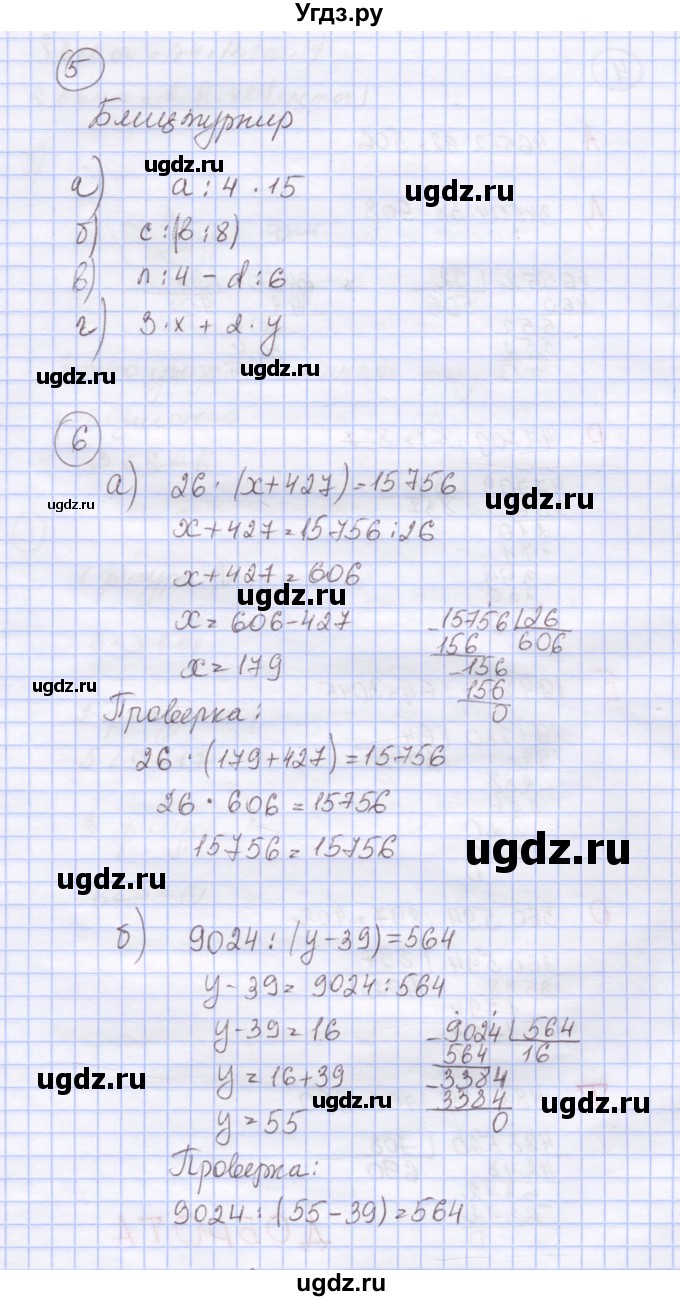 Угдз.ру
5
Блицтурнир
ugdz.ru
ugdz.ru
а) a : 4 · 15
б) c : (b : 8)
в) n : 4 - d : 6
г) 3 · x + 2 · y
ugdz.ru
ugdz.ru
6
а) 26 · (x + 427) = 15756
ugdz.ru
ugdz.ru
x + 427 = 15756 : 26
x + 427 = 606
ugdz.ru
x = 606 - 427
15756 26
156 606
x = 179
156
ugdz.ru
156
0
Проверка:
26 · (179 + 427) = 15756
26 · 606 = 15756
15756 = 15756
ugdz.ru
ugdz.ru
б) 9024 : (y - 39) = 564
y - 39 = 9024 : 564
y - 39 = 16
9024 564
564 16
y = 16 + 39
3384
ugdz.ru
ugdz.ru
3384
ugdz.ru
y = 55
0
Проверка:
9024 : (55 - 39) = 564
ugdz.ru